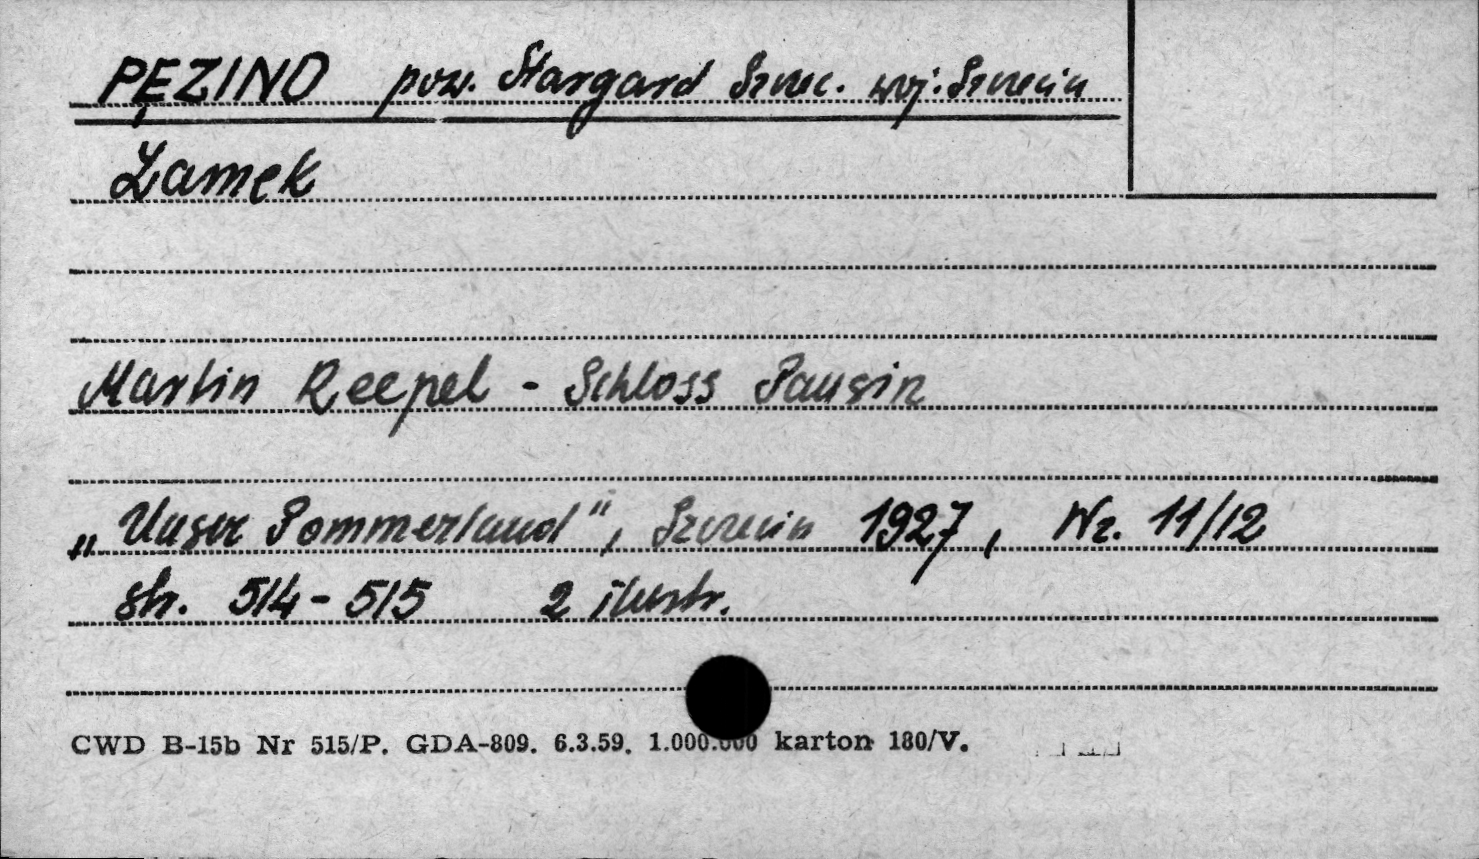 PĘZINO pow. Stargard Szczec. woj. Szczecin
Zamek
Martin Reepel - Schloss Pausin
„Unser Pommerland", Szczecin 1927, Nr. 11/12
str. 514-515 2 ilustr.
CWD B-15b Nr 515/P. GDA-809. 6.3.59. 1.000.000 karton 180/V.